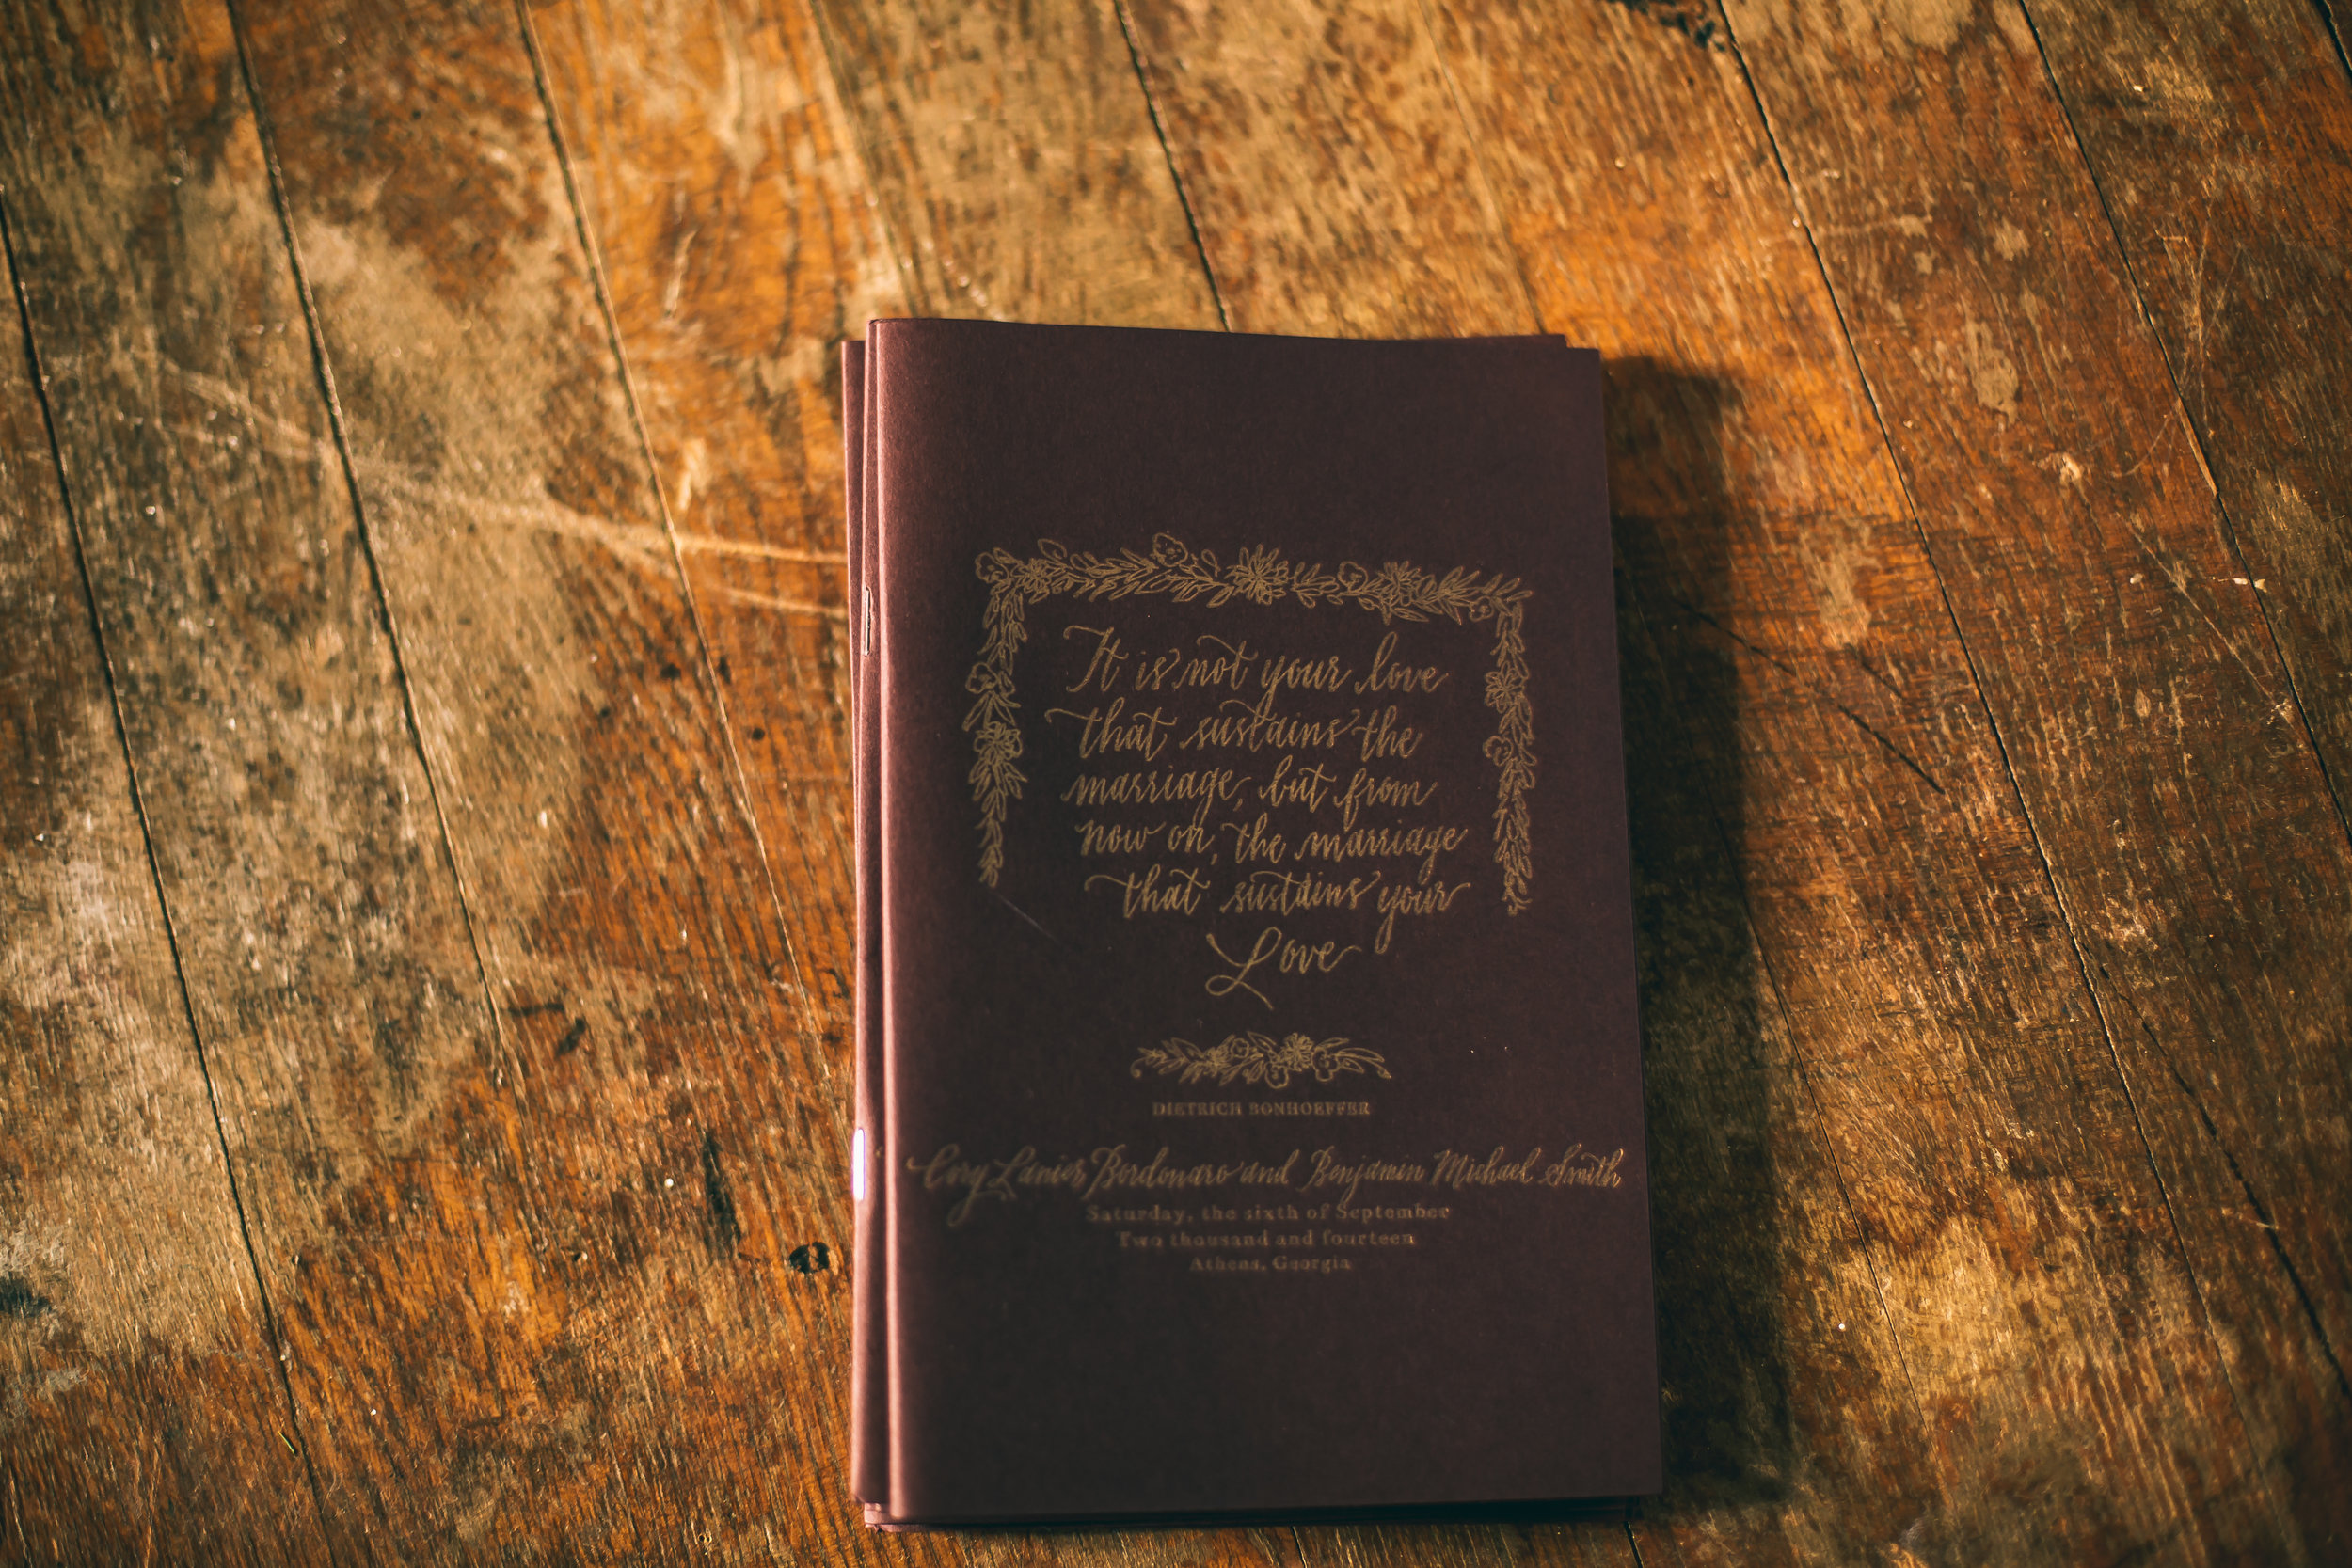 It is not your love
that sustains the
marriage, but from
now on, the marriage
that sustains your
Love
DIETRICH BONHOEFFER
Cory Lanier Bordonaro and Benjamin Michael Smith
Saturday, the sixth of September
Two thousand and fourteen
Athens, Georgia